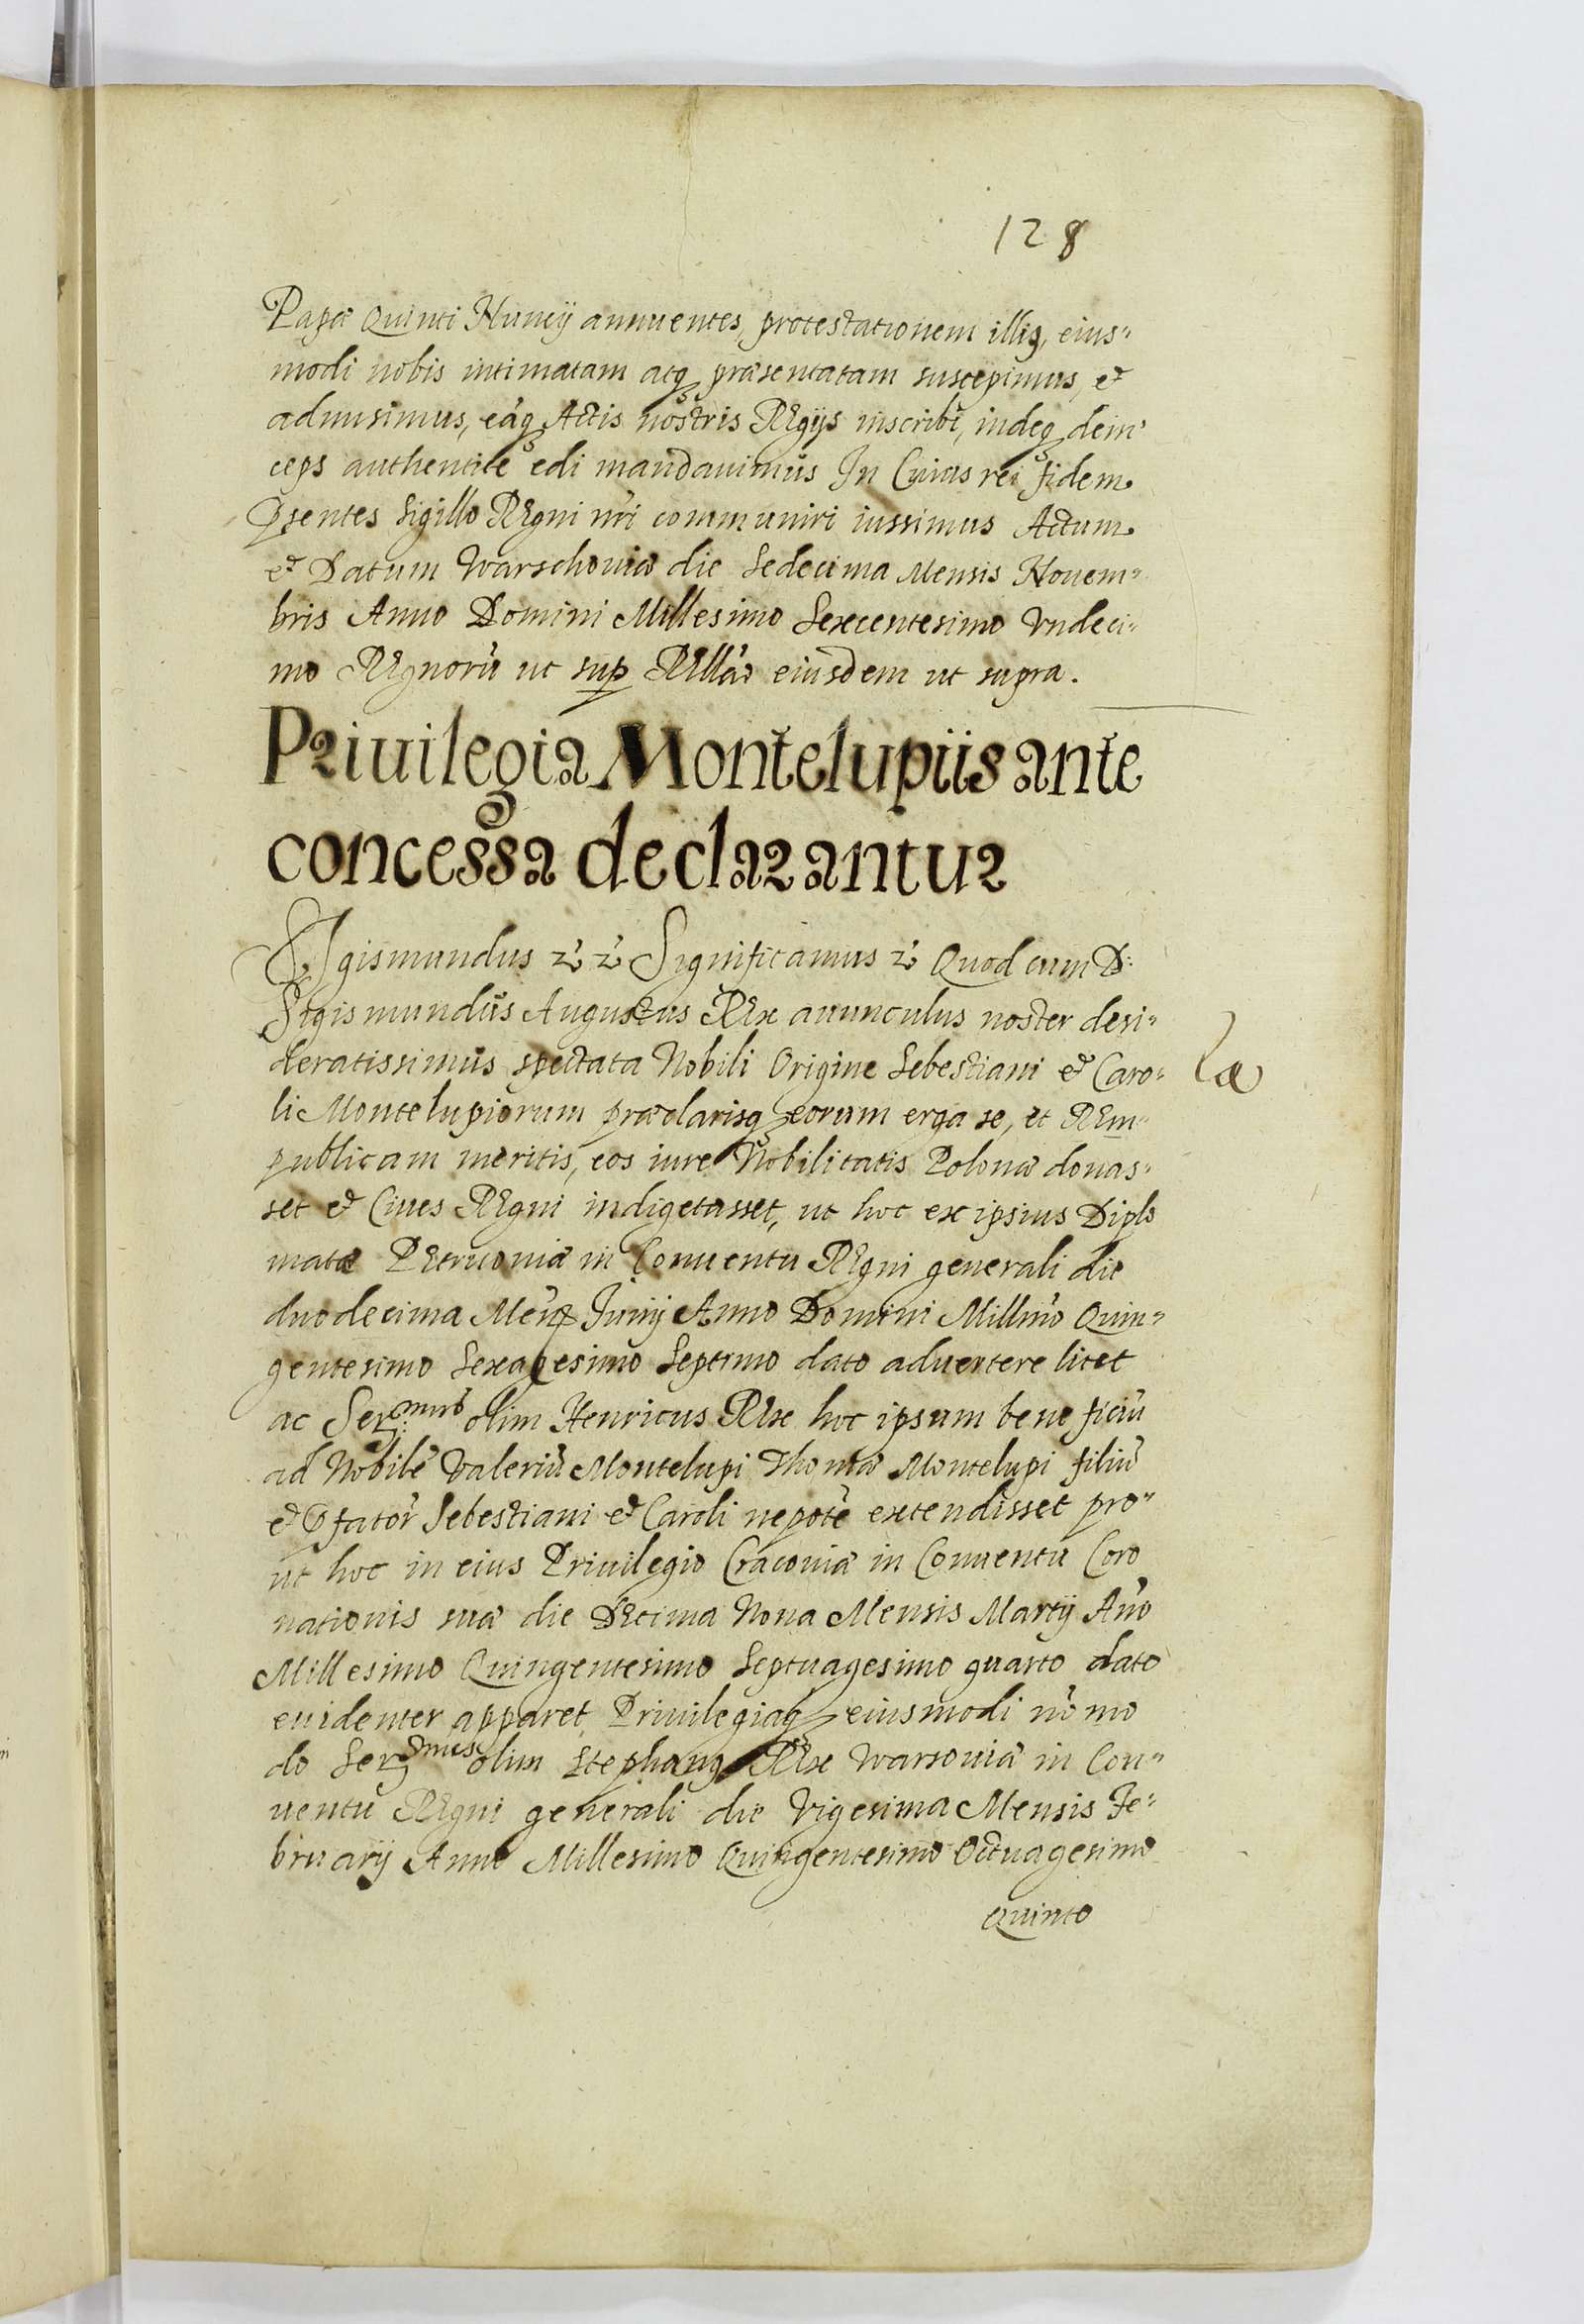 128
Papæ Quinti Nuncij annuentes, protestationem illig, eius=
modi nobis intimatam atq præsentatam suscepimus, et
admisimus, eaq Actis nostris Regijs inscribi, indeq dein=
ceps authentice edi mandauimus In Cuius rei fidem
Psentes Sigillo Regni nri communiri iussimus Actum
et Datum Warschouiæ die Sedecima Mensis Nouem=
bris Anno Domini Millesimo Sexcentesimo Vndeci=
mo Regnorū ut sup Rella eiusdem ut supra.
Priuilegia Montelupiis ante
concessa declarantur
Sigismundus zc zc Significamus zc Quod cum D:
Sigismundus Augustus Rex auunculus noster desi=
deratissimus spectata Nobili Origine Sebestiani et Caro=
li Montelupiorum præclarisq eorum erga se, et Rem=
publicam meritis, eos iure Nobilitatis Polonæ donas=
set et Ciues Regni indigetasset, ut hoc ex ipsius Diplo
mate Petricouiæ in Conuentu Regni generali die
duodecima Mens Junij Anno Domini Millmo Quin=
gentesimo Sexagesimo Septimo dato aduertere licet
ac Sermus olim Henricus Rex hoc ipsum beneficiū
ad Nobilē Valeriū Montelupi Thomæ Montelupi filiū
et Pfator Sebestiani et Caroli nepotē extendisset pro=
ut hoc in eius Priuilegio Cracouiæ in Conuentu Coro
nationis suæ die Decima Nona Mensis Martij Año
Millesimo Quingentesimo Septuagesimo quarto dato
euidenter apparet Priuilegiaq eiusmodi nō mo
do Sermus olim Stephang Rex Warsouiæ in Con=
uentu Regni generali die Vigesima Mensis Fe=
bruarij Anno Millesimo Quingentesimo Octuagesimo
Quinto